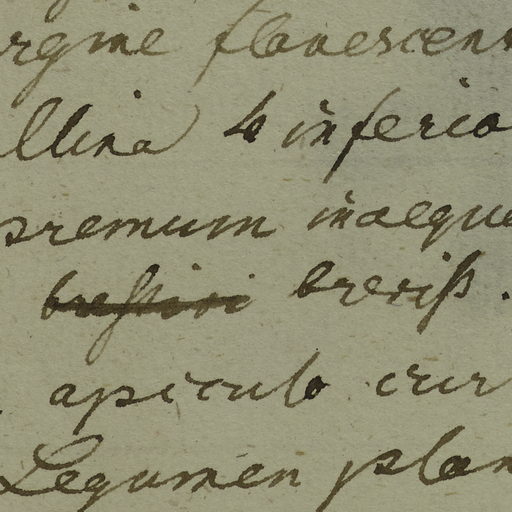 rgine flavescent
llina 4 inferio
premum inaeque
breviss.
apiculo cur
Legumen plan